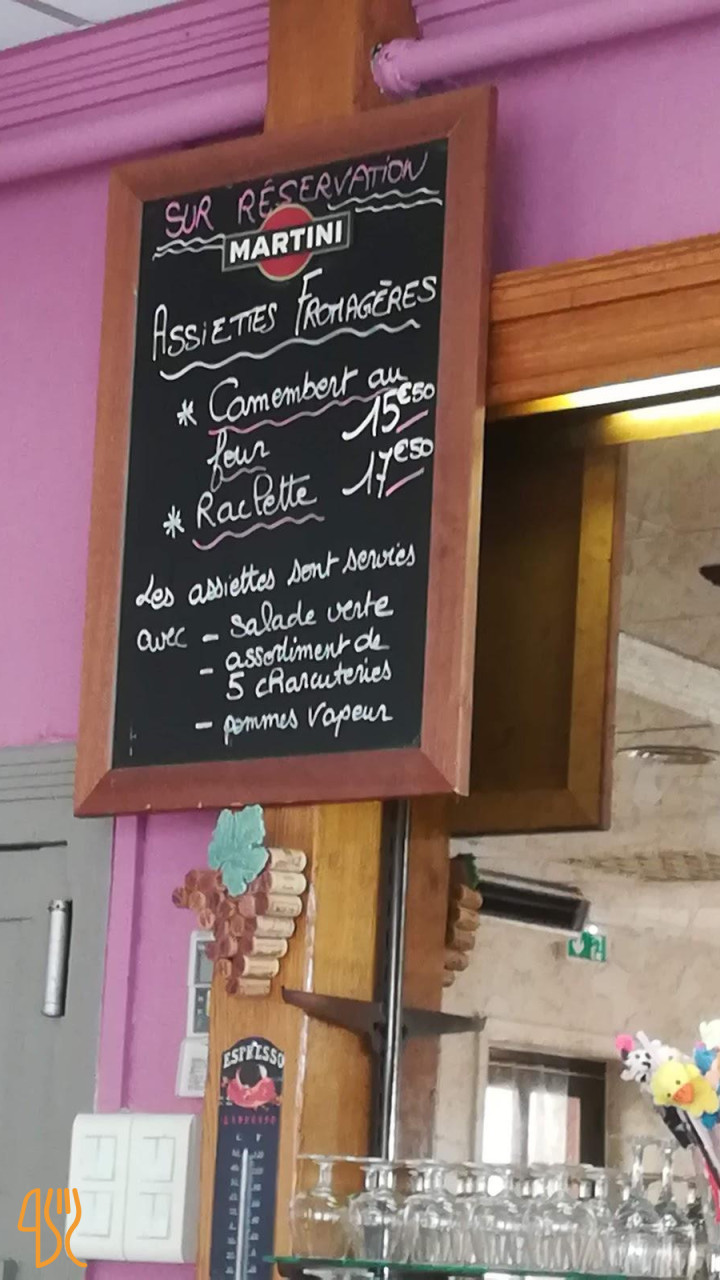 SUR RÉSERVATION
MARTINI
ASSIETTES FROMAGÈRES
* Camembert au
four 15€50
* Raclette 17€50
Les assiettes sont servies
avec - salade verte
- assortiment de
5 charcuteries
- pommes vapeur
ESPRESSO